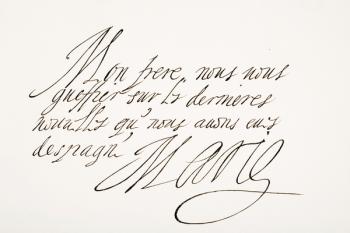 Mon frere, nous nous
sur les dernieres
nouvelles qu' nous auons eus
despagn
Marie